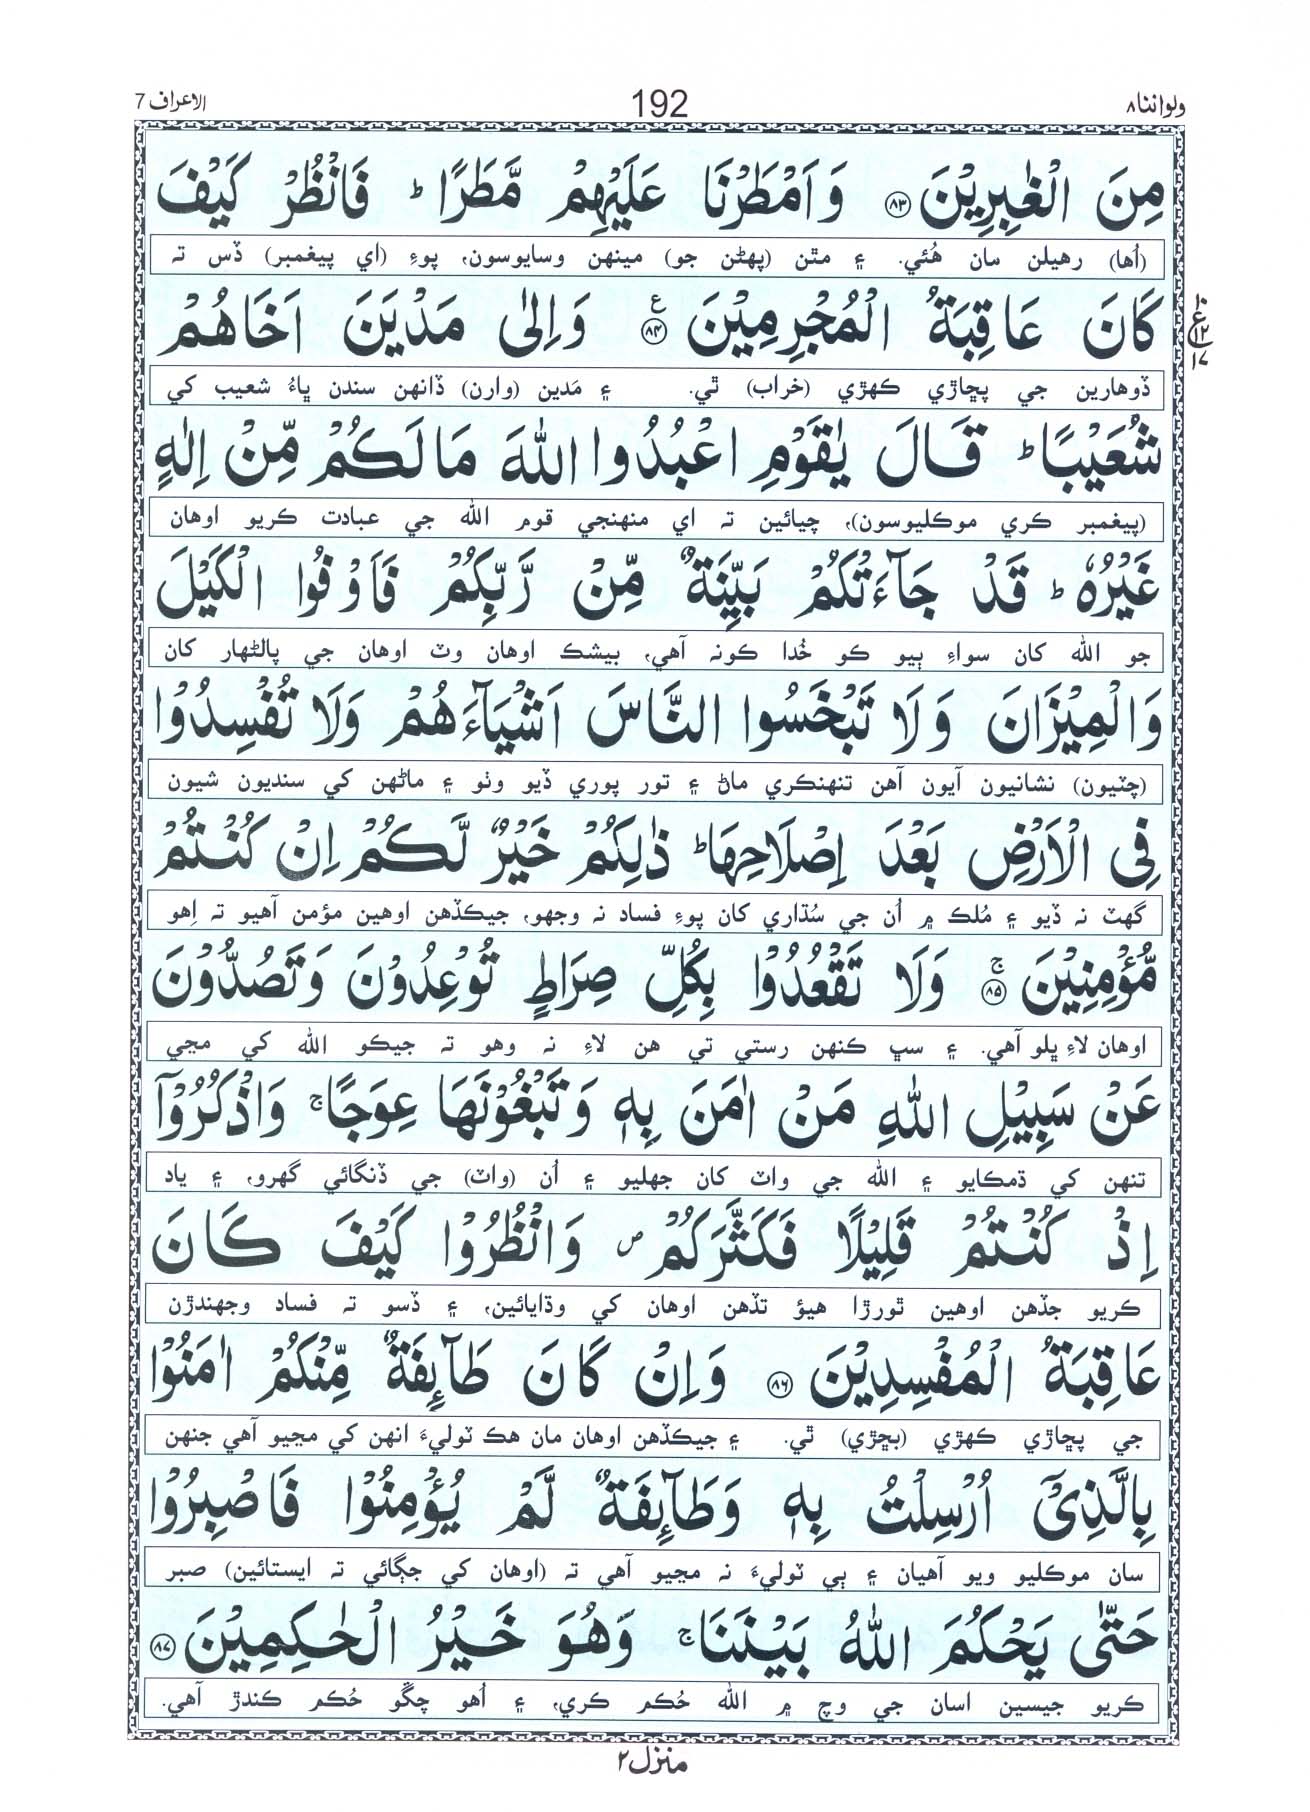 ولواننا ٨ 192 الاعراف 7
مِنَ الْغٰبِرِيْنَ ﴿٨٣﴾ وَاَمْطَرْنَا عَلَيْهِمْ مَّطَرًا ؕ فَانْظُرْ كَيْفَ
(اُها) رهيلن سان هُئي. ۽ مٿن (پهڻن جو) مينهن وسايوسون، پوءِ (اي پيغمبر) ڏس ته
كَانَ عَاقِبَةُ الْمُجْرِمِيْنَ ﴿٨٤﴾ ع وَاِلٰى مَدْيَنَ اَخَاهُمْ
ڏوهارين جي پڇاڙي ڪهڙي (خراب) ٿي. ۽ مَدين (وارن) ڏانهن سندن ڀاءُ شعيب کي
شُعَيْبًا ؕ قَالَ يٰقَوْمِ اعْبُدُوا اللّٰهَ مَا لَكُمْ مِّنْ اِلٰهٍ
(پيغمبر ڪري موڪليوسون)، چيائين ته اي منهنجي قوم الله جي عبادت ڪريو اوهان
غَيْرُهٗ ؕ قَدْ جَآءَتْكُمْ بَيِّنَةٌ مِّنْ رَّبِّكُمْ فَاَوْفُوا الْكَيْلَ
جو الله کان سواءِ ٻيو ڪو خُدا ڪونہ آهي، بيشڪ اوهان وٽ اوهان جي پالڻهار کان
وَالْمِيْزَانَ وَلَا تَبْخَسُوا النَّاسَ اَشْيَآءَهُمْ وَلَا تُفْسِدُوْا
(چٽيون) نشانيون آيون آهن تنهنڪري ماڻ ۽ تور پوري ڏيو وٺو ۽ ماڻهن کي سنديون شيون
فِى الْاَرْضِ بَعْدَ اِصْلَاحِهَا ؕ ذٰلِكُمْ خَيْرٌ لَّكُمْ اِنْ كُنْتُمْ
گهٽ نہ ڏيو ۽ مُلڪ ۾ اُن جي سُڌاري کان پوءِ فساد نہ وجهو، جيڪڏهن اوهين مؤمن آهيو تہ اِهو
مُّؤْمِنِيْنَ ﴿٨٥﴾ ج وَلَا تَقْعُدُوْا بِكُلِّ صِرَاطٍ تُوْعِدُوْنَ وَتَصُدُّوْنَ
اوهان لاءِ ڀلو آهي. ۽ سڀ ڪنهن رستي تي هن لاءِ نہ وهو تہ جيڪو الله کي مڃي
عَنْ سَبِيْلِ اللّٰهِ مَنْ اٰمَنَ بِهٖ وَتَبْغُوْنَهَا عِوَجًا ۚ وَاذْكُرُوْۤا
تنهن کي ڌمڪايو ۽ الله جي واٽ کان جهليو ۽ اُن (واٽ) جي ڏنگائي گهرو، ۽ ياد
اِذْ كُنْتُمْ قَلِيْلًا فَكَثَّرَكُمْ ص وَانْظُرُوْا كَيْفَ كَانَ
ڪريو جڏهن اوهين ٿورڙا هيؤ تڏهن اوهان کي وڌايائين، ۽ ڏسو تہ فساد وجهندڙن
عَاقِبَةُ الْمُفْسِدِيْنَ ﴿٨٦﴾ وَاِنْ كَانَ طَآئِفَةٌ مِّنْكُمْ اٰمَنُوْا
جي پڇاڙي ڪهڙي (بڇڙي) ٿي. ۽ جيڪڏهن اوهان مان هڪ ٽوليءَ انهن کي مڃيو آهي جنهن
بِالَّذِىْۤ اُرْسِلْتُ بِهٖ وَطَآئِفَةٌ لَّمْ يُؤْمِنُوْا فَاصْبِرُوْا
سان موڪليو ويو آهيان ۽ ٻي ٽوليءَ نہ مڃيو آهي تہ (اوهان کي جڳائي تہ ايستائين) صبر
حَتّٰى يَحْكُمَ اللّٰهُ بَيْنَنَا ۚ وَهُوَ خَيْرُ الْحٰكِمِيْنَ ﴿٨٧﴾
ڪريو جيسين اسان جي وچ ۾ الله حُڪم ڪري، ۽ اُهو چڱو حُڪم ڪندڙ آهي.
منزل ٢